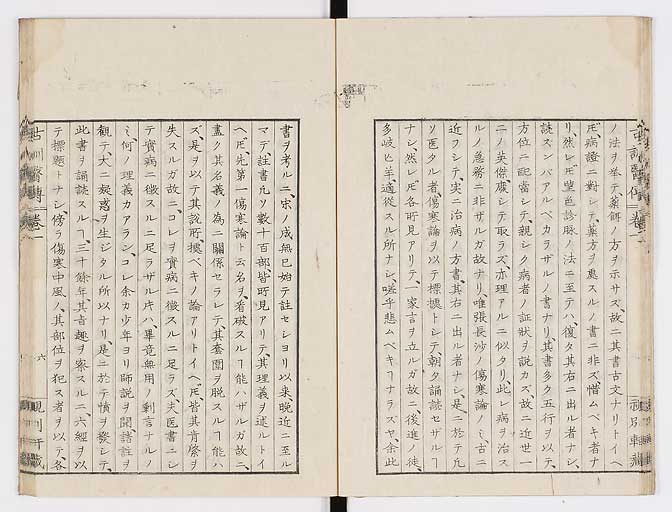 ノ法ヲ挙テ、藥餌ノ方ヲ示サズ、故ニ其書古文ナリトイヘ
𪜈、病證ニ對シテ、藥方ヲ裏スルノ書ニ非ズ、惜ムベキ者ナ
リ、然レ𪜈望色診脉ノ法ニ至テハ、復タ其右ニ出ル者ナシ、
讀ズンバアルベカラザルノ書ナリ、其書多ク五行ヲ以テ、
方位ニ配當シテ、親シク病者ノ証狀ヲ説カズ、故ニ近世一
二ノ英傑廢シテ取ラズ、亦理アルニ似タリ、此レ病ヲ治ス
ルノ急務ニ非ザルガ故ナリ、唯張長沙ノ傷寒論ノミ、古ニ
近フシテ、実ニ治病ノ方書、其右ニ出ル者ナシ、是ニ於テ凡
ソ医タル者、傷寒論ヲ以テ標的トシテ、朝夕誦讀セザルヿ
ナシ、然レ𪜈各所見アリテ、一家言ヲ立ルガ故ニ後進ノ徒、
多岐亡羊、適從スル所ナシ、嗟乎悲ムベキヿナラズヤ、余此
書ヲ考ルニ、宋ノ成無已始テ註セシヨリ以来晩近ニ至ル
マデ、註書凡ソ數十百部、皆所見アリテ、其理義ヲ述ルトイ
ヘ𪜈、先第一傷寒論ト云名ヲ、看破スルヿ能ハザルガ故ニ、
盡ク其名義ノ為ニ關係セラレテ、其套圏ヲ脱スルヿ能ハ
ズ、是ヲ以テ其説所據ベキノ論アリトイヘ𪜈、皆其肯綮ヲ
失スルガ故ニ、コレヲ實病ニ徴スルニ足ラズ、夫医書ニシ
テ實病ニ徴スルニ足ラザル片ハ、畢竟無用ノ剰言ナルノ
ミ、何ノ理義カアラン、コレ余カ少年ヨリ師説ヲ聞、諸註ヲ
觀テ、大ニ疑惑ヲ生ジタル所以ナリ、是ニ於テ憤ヲ發シテ、
此書ヲ誦讀スルヿ、三十餘年、其旨趣ヲ察スルニ、六經ヲ以
テ標題トナシ、傍ラ傷寒中風ノ、其部位ヲ犯ス者ヲ以テ、各
六